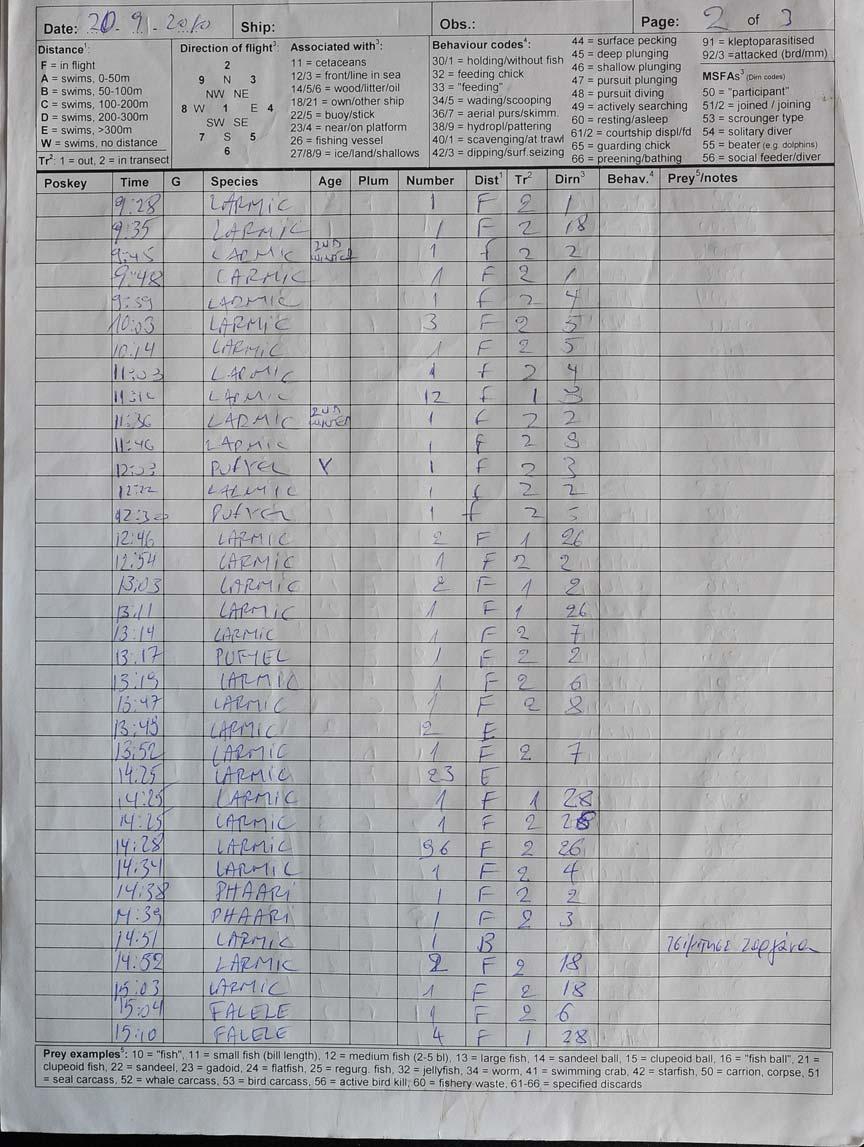 Date: 20.9.2010 Ship: Obs.: Page: 2 of 3
Distance¹:
F = in flight
A = swims, 0-50m
B = swims, 50-100m
C = swims, 100-200m
D = swims, 200-300m
E = swims, >300m
W = swims, no distance
Tr²: 1 = out, 2 = in transect
Direction of flight³:
2
9 N 3
NW NE
8 W 1 E 4
SW SE
7 S 5
6
Associated with³:
11 = cetaceans
12/3 = front/line in sea
14/5/6 = wood/litter/oil
18/21 = own/other ship
22/5 = buoy/stick
23/4 = near/on platform
26 = fishing vessel
27/8/9 = ice/land/shallows
Behaviour codes⁴:
30/1 = holding/without fish
32 = feeding chick
33 = "feeding"
34/5 = wading/scooping
36/7 = aerial purs/skimm.
38/9 = hydropl/pattering
40/1 = scavenging/at trawl
42/3 = dipping/surf.seizing
44 = surface pecking
45 = deep plunging
46 = shallow plunging
47 = pursuit plunging
48 = pursuit diving
49 = actively searching
60 = resting/asleep
61/2 = courtship displ/fd
65 = guarding chick
66 = preening/bathing
91 = kleptoparasitised
92/3 =attacked (brd/mm)
MSFAs³ (Dirn codes)
50 = "participant"
51/2 = joined / joining
53 = scrounger type
54 = solitary diver
55 = beater (e.g. dolphins)
56 = social feeder/diver
Poskey Time G Species Age Plum Number Dist¹ Tr² Dirn³ Behav.⁴ Prey⁵/notes
9:28 LARMIC 1 F 2 1
9:35 LARMIC 1 F 2 18
9:45 LARMIC 2ND WINTER 1 f 2 2
9:48 LARMIC 1 F 2 1
9:59 LARMIC 1 f 2 4
10:03 LARMIC 3 F 2 5
10:14 LARMIC 1 F 2 5
11:03 LARMIC 1 f 2 4
LARMIC 12 f 1 3
11:36 LARMIC 2ND WINTER 1 f 2 2
11:46 LARMIC 1 f 2 9
12:03 PUFYEL Y 1 F 2 3
12:22 LARMIC 1 f 2 2
PUFYEL 1 f 2 5
12:46 LARMIC 2 F 1 26
12:54 LARMIC 1 F 2 2
13:03 LARMIC 2 F 1 2
13:11 LARMIC 1 F 1 26
13:14 LARMIC 1 F 2 7
13:17 PUFYEL 1 F 2 2
13:19 LARMIC 1 F 2 6
13:47 LARMIC 1 F 2 8
13:49 LARMIC 2 E
13:52 LARMIC 1 F 2 7
14:25 LARMIC 23 E
14:25 LARMIC 1 F 1 28
14:25 LARMIC 1 F 2 28
14:28 LARMIC 96 F 2 26
14:34 LARMIC 1 F 2 4
14:38 PHAARI 1 F 2 2
14:39 PHAARI 1 F 2 3
14:51 LARMIC 1 B
14:52 LARMIC 2 F 2 18
15:03 LARMIC 1 F 2 18
15:04 FALELE 1 F 2 6
15:10 FALELE 4 F 1 28
Prey examples⁵: 10 = "fish", 11 = small fish (bill length), 12 = medium fish (2-5 bl), 13 = large fish, 14 = sandeel ball, 15 = clupeoid ball, 16 = "fish ball", 21 =
clupeoid fish, 22 = sandeel, 23 = gadoid, 24 = flatfish, 25 = regurg. fish, 32 = jellyfish, 34 = worm, 41 = swimming crab, 42 = starfish, 50 = carrion, corpse, 51
= seal carcass, 52 = whale carcass, 53 = bird carcass, 56 = active bird kill; 60 = fishery waste, 61-66 = specified discards